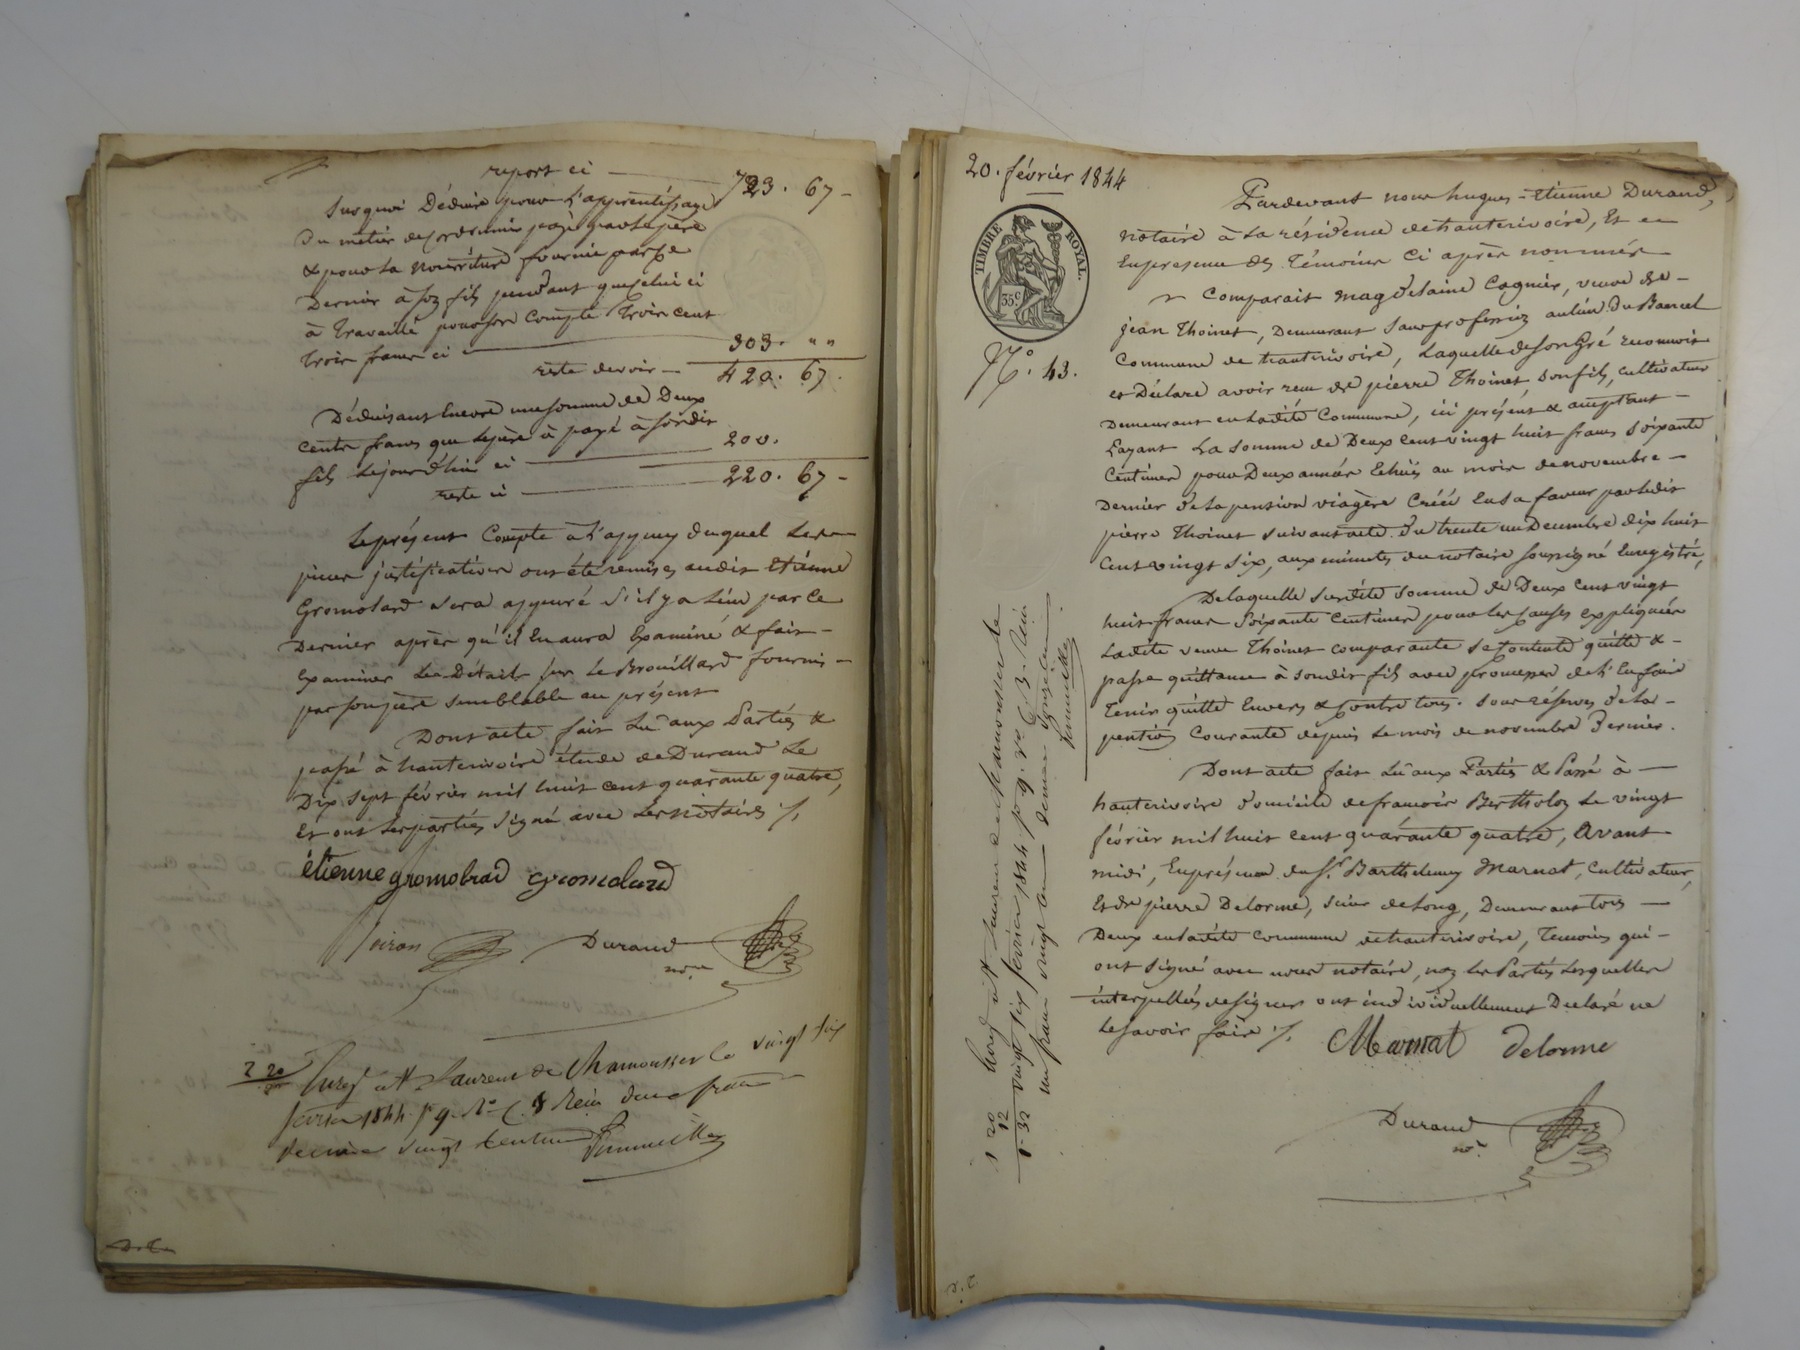 report ci 723. 67
Sur quoi Déduire pour l'apprentissage
du metier de cordonnier payé par le père
& pour la nourriture fournie par ce
Dernier à son fils pendant que celui ci
à travaillé pour son compte trois cent
trois francs ci 303. " "
reste devoir 420. 67.
Déduisant Encore une somme de Deux
cents francs que le père à payé à son dit
fils ce jourd'hui ci 200.
reste ci 220. 67
Le présent Compte à l'appuy duquel les
pieces justificatives ont été remises audit Etienne
Gromolard sera appuré s'il y a lieu par ce
Dernier après qu'il en aura Examiné & fait
Examiner les Détails sur le Brouillard fourni
par son père semblable au présent
Dont acte fait Lu aux Parties &
passé à hauterivoire étude de Durand Le
Dix sept février mil huit cent quarante quatre,
Et ont les parties signé avec les notaires ./.
étienne gromolrad gromolard
Durand
nore
2 20 Enregé à St Laurent de Chamousset le vingt six
février 1844. fo 9. Ro C. 8 Reçu deux francs
décime vingt centimes
20. février 1844
TIMBRE ROYAL.
35c
No. 43.
Pardevant nous hugues-Etienne Durand,
notaire à la résidence de hauterivoire, Et en
En presence des Témoins Ci après nommés
Comparait magdelaine Cognier, veuve de
jean Thoinet, Demeurant sans profession au lieu du Bancel
Commune de hauterivoire, Laquelle de son Gré reconnoit
et Déclare avoir reçu de pierre Thoinet son fils, cultivateur
Demeurant en Ladite Commune, ici présent & acceptant
Layant La somme de Deux cent vingt huit francs soixante
Centimes pour Deux années Echues au mois de novembre
Dernier de la pension viagère Créée en sa faveur par ledit
pierre Thoinet suivant acte du trente un Decembre dix huit
Cent vingt six, aux minutes du notaire soussigné Enregistré,
De laquelle susdite somme de Deux cent vingt
huit francs soixante Centimes pour les causes expliquées
Ladite veuve Thoinet comparante se contente quitte &
passe quittance à son dit fils avec promesse de l'En faire
tenir quitte Envers & contre tous. sous réserves de la
pention Courante depuis Le mois de novembre Dernier.
Dont acte fait Lu aux Parties & Passé à
hauterivoire domicile de francois Bertholon Le vingt
février mil huit cent quarante quatre, Avant
midi, En présence de Sr. Barthelemy Marnat, Cultivateur,
Et de pierre Delorme, scieur de Long, Demeurant tous
Deux en ladite commune de hauterivoire, Temoins qui
ont signé avec nous notaire, non les Parties Lesquelles
interpellées de signer ont individuellement Declaré ne
Le savoir faire ./.
Marnat Delorme
Durand
nore
Enregé à St Laurent de Chamousset le
vingt six février 1844 fo 9. Vo C. 3. Reçu
un franc vingt cent décime
1 20
12
1. 32